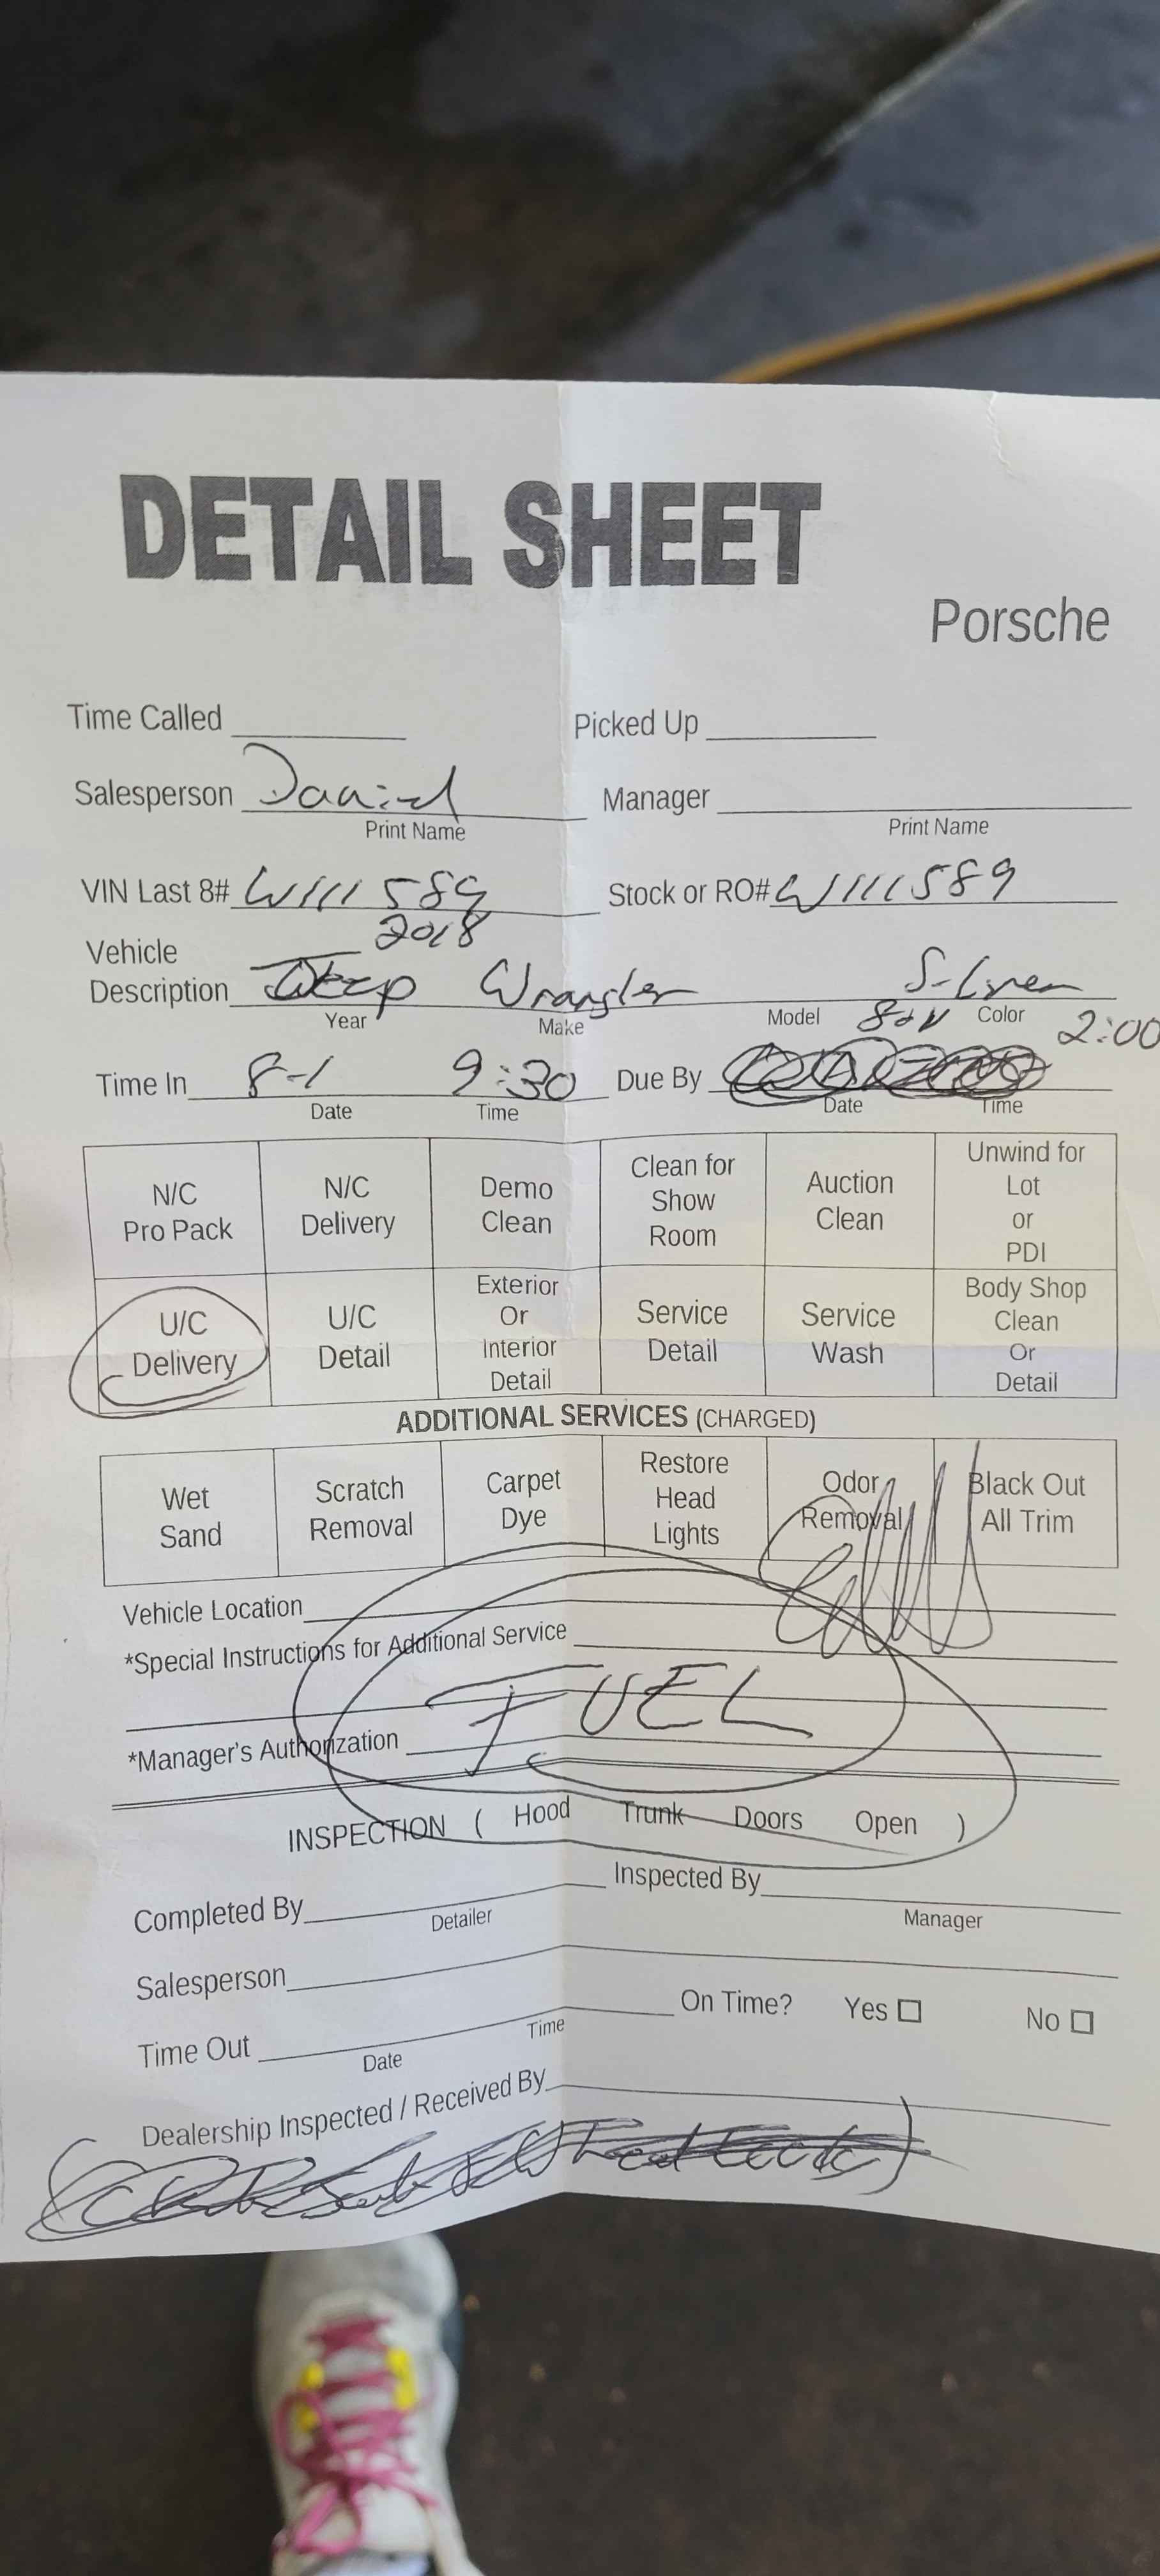 DETAIL SHEET
Porsche
Time Called Picked Up
Salesperson Daniel Manager
Print Name Print Name
VIN Last 8# W111589 Stock or RO# W111589
2018
Vehicle
Description Jeep Wrangler Silver
Year Make Model Color
2:00
Time In 8-1 9:30 Due By
Date Time Date Time
N/C Pro Pack N/C Delivery Demo Clean Clean for Show Room Auction Clean Unwind for Lot or PDI
U/C Delivery U/C Detail Exterior Or Interior Detail Service Detail Service Wash Body Shop Clean Or Detail
ADDITIONAL SERVICES (CHARGED)
Wet Sand Scratch Removal Carpet Dye Restore Head Lights Odor Removal Black Out All Trim
Vehicle Location
*Special Instructions for Additional Service
FUEL
*Manager's Authorization
INSPECTION ( Hood Trunk Doors Open )
Completed By Inspected By
Detailer Manager
Salesperson
Time Out On Time? Yes No
Date Time
Dealership Inspected / Received By